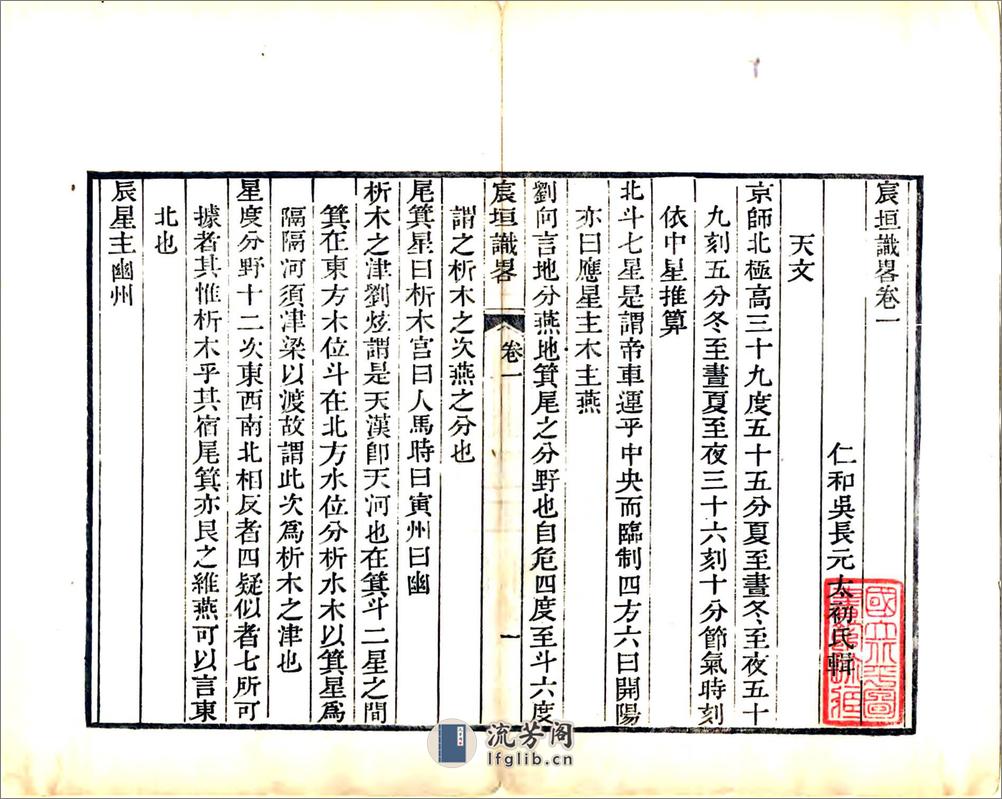 宸垣識畧卷一
仁和吳長元太初氏輯
天文
京師北極高三十九度五十五分夏至晝冬至夜五十
九刻五分冬至晝夏至夜三十六刻十分節氣時刻
依中星推算
北斗七星是謂帝車運乎中央而臨制四方六曰開陽
亦曰應星主木主燕
劉向言地分燕地箕尾之分野也自危四度至斗六度
宸垣識畧 卷一 一
謂之析木之次燕之分也
尾箕星曰析木宮曰人馬時曰寅州曰幽
析木之津劉炫謂是天漢卽天河也在箕斗二星之間
箕在東方木位斗在北方水位分析水木以箕星爲
隔隔河須津梁以渡故謂此次爲析木之津也
星度分野十二次東西南北相反者四疑似者七所可
據者其惟析木乎其宿尾箕亦艮之維燕可以言東
北也
辰星主幽州
國立北平圖書館收藏
流芳阁
lfglib.cn